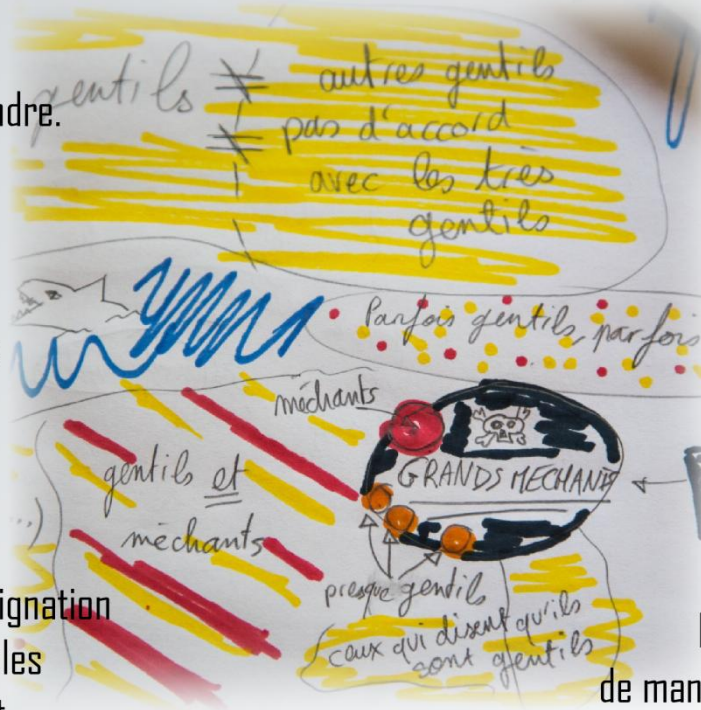 ndre.
gentils ≠ autres gentils
≠ pas d'accord
avec les très
gentils
Parfois gentils, parfois
méchants
GRANDS MECHANTS
gentils et
méchants
presque gentils
ceux qui disent qu'ils
sont gentils
...)
ignation
les
t
de man